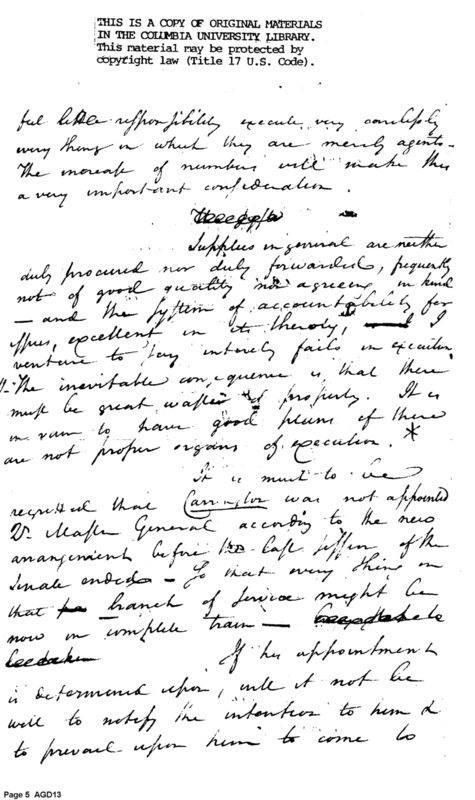 THIS IS A COPY OF ORIGINAL MATERIALS
IN THE COLUMBIA UNIVERSITY LIBRARY.
This material may be protected by
copyright law (Title 17 U.S. Code).
feel little responsibility execute very carelessly
every thing in which they are merely agents—
The increase of numbers will make this
a very important consideration.
Supplies in general are neither
duly procured nor duly forwarded, frequently
not of good quality nor agreeing in kind
— and the system of accountability for
issues, excellent in its theory, I
venture to say intirely fails in execution
The inevitable consequence is that there
must be great waste of property. It is
in vain to have good plans if there
are not proper organs of execution. *
It is much to be
regretted that Carrington was not appointed
Qr. Master General according to the new
arrangement before the last session of the
Senate ended — So that every thing in
that branch of service might be
now in complete train —
If his appointment
is determined upon, will it not be
well to notify the intention to him &
to prevail upon him to come to
Page 5 AGD13